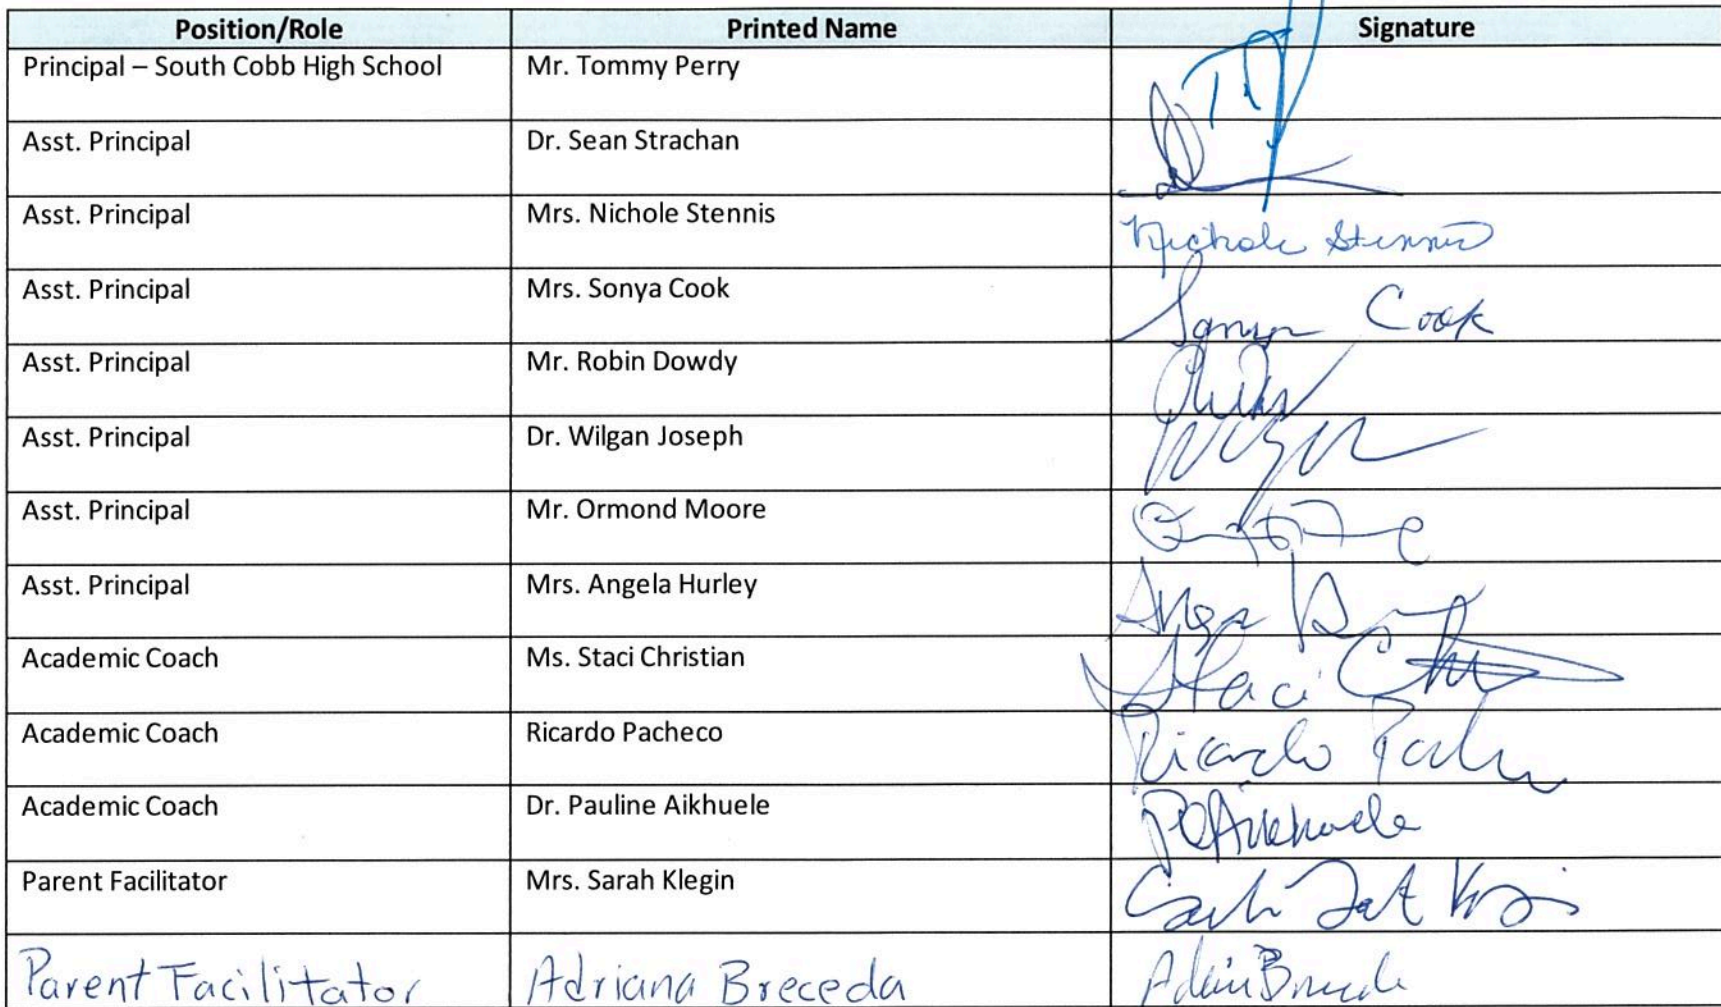 Position/Role Printed Name Signature
Principal – South Cobb High School Mr. Tommy Perry
Asst. Principal Dr. Sean Strachan
Asst. Principal Mrs. Nichole Stennis Nichole Stennis
Asst. Principal Mrs. Sonya Cook Sonya Cook
Asst. Principal Mr. Robin Dowdy
Asst. Principal Dr. Wilgan Joseph
Asst. Principal Mr. Ormond Moore
Asst. Principal Mrs. Angela Hurley
Academic Coach Ms. Staci Christian Staci
Academic Coach Ricardo Pacheco Ricardo
Academic Coach Dr. Pauline Aikhuele
Parent Facilitator Mrs. Sarah Klegin
Parent Facilitator Adriana Breceda